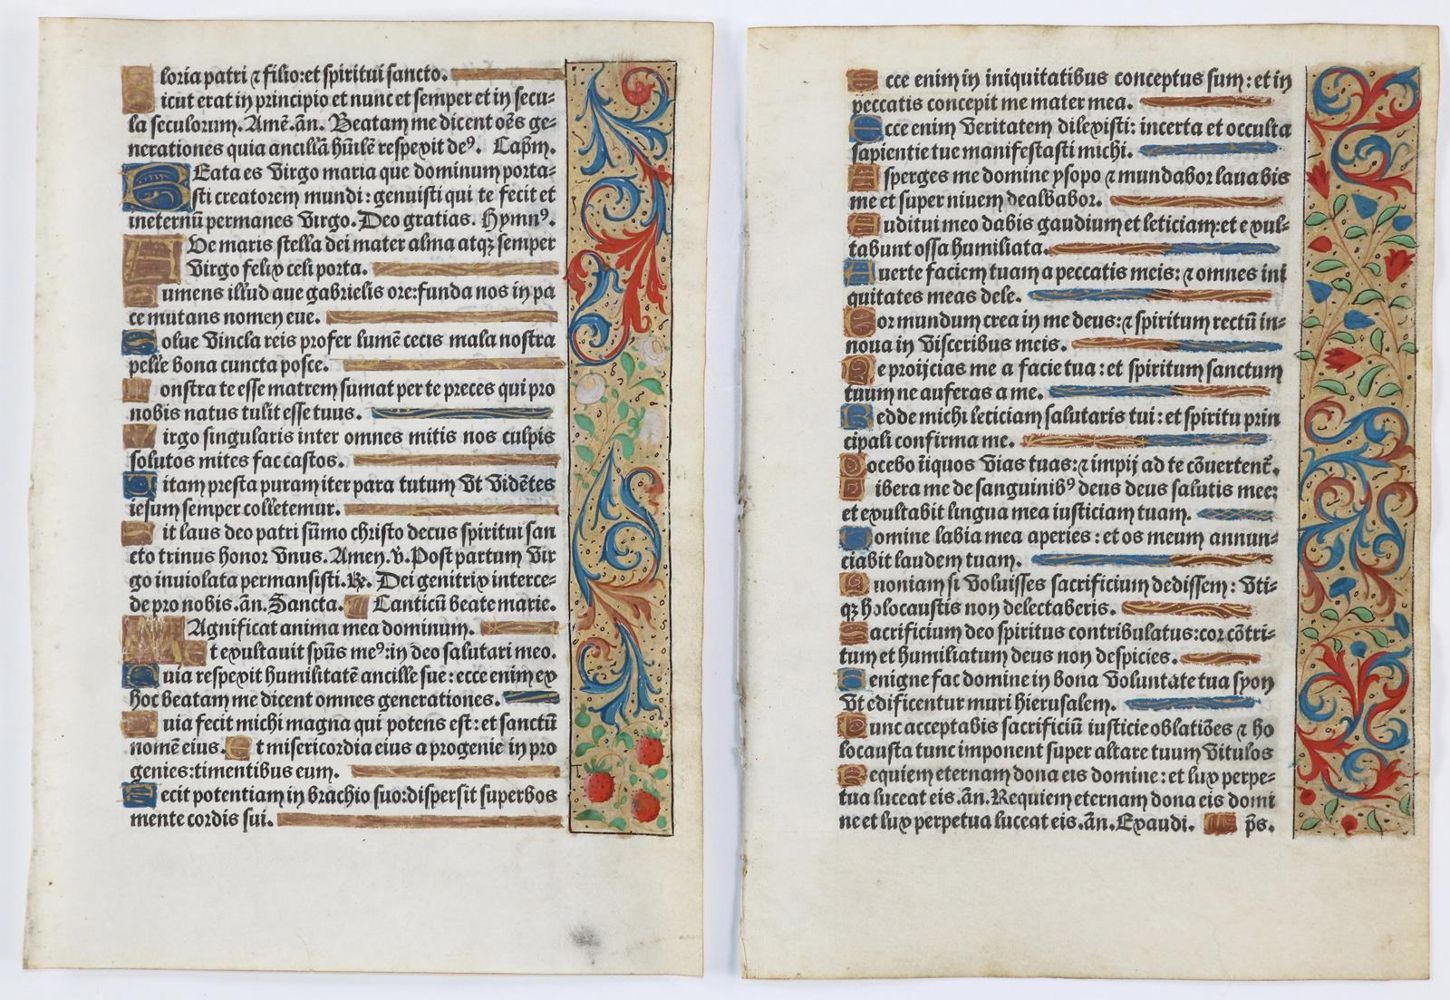 Gloria patri ⁊ filio:et spiritui sancto.
Sicut erat in principio et nunc et semper et in secu-
la seculorum. Amē. añ. Beatam me dicent oēs ge-
nerationes quia ancillā hūilē respexit de⁹. Capłm.
BEata es virgo maria que dominum porta-
sti creatorem mundi: genuisti qui te fecit et
ineternū permanes virgo. Deo gratias. Hymn⁹.
AVe maris stella dei mater alma atqꝫ semper
virgo felix celi porta.
Sumens illud aue gabrielis ore:funda nos in pa
ce mutans nomen eue.
Solue vincla reis profer lumē cecis mala nostra
pelle bona cuncta posce.
Monstra te esse matrem sumat per te preces qui pro
nobis natus tulit esse tuus.
Virgo singularis inter omnes mitis nos culpis
solutos mites fac castos.
Vitam presta puram iter para tutum vt vidētes
iesum semper colletemur.
Sit laus deo patri sūmo christo decus spiritui san
cto trinus honor vnus. Amen. ꝟ. Post partum vir
go inuiolata permansisti. ℟. Dei genitrix interce-
de pro nobis. añ. Sancta. Canticū beate marie.
MAgnificat anima mea dominum.
Et exultauit spūs me⁹:in deo salutari meo.
Quia respexit humilitatē ancille sue: ecce enim ex
hoc beatam me dicent omnes generationes.
Quia fecit michi magna qui potens est: et sanctū
nomē eius. Et misericordia eius a progenie in pro
genies:timentibus eum.
Fecit potentiam in brachio suo:dispersit superbos
mente cordis sui.
Ecce enim in iniquitatibus conceptus sum: et in
peccatis concepit me mater mea.
Ecce enim veritatem dilexisti: incerta et occulta
sapientie tue manifestasti michi.
Asperges me domine ysopo ⁊ mundabor laua bis
me et super niuem dealbabor.
Auditui meo dabis gaudium et leticiam:et exul-
tabunt ossa humiliata.
Auerte faciem tuam a peccatis meis: ⁊ omnes ini
quitates meas dele.
Cor mundum crea in me deus:⁊ spiritum rectū in-
noua in visceribus meis.
Ne proijcias me a facie tua: et spiritum sanctum
tuum ne auferas a me.
Redde michi leticiam salutaris tui: et spiritu prin
cipali confirma me.
Docebo īiquos vias tuas:⁊ impij ad te cōuertent̄.
Libera me de sanguinib⁹ deus deus salutis mee:
et exultabit lingua mea iusticiam tuam.
Domine labia mea aperies: et os meum annun-
ciabit laudem tuam.
Quoniam si voluisses sacrificium dedissem: vti-
qꝫ holocaustis non delectaberis.
Sacrificium deo spiritus contribulatus:cor cōtri-
tum et humiliatum deus non despicies.
Benigne fac domine in bona voluntate tua syon
vt edificentur muri hierusalem.
Tunc acceptabis sacrificiū iusticie oblatiōes ⁊ ho
locausta tunc imponent super altare tuum vitulos
Requiem eternam dona eis domine: et lux perpe-
tua luceat eis. añ. Requiem eternam dona eis domi
ne et lux perpetua luceat eis. añ. Exaudi. p̄s.